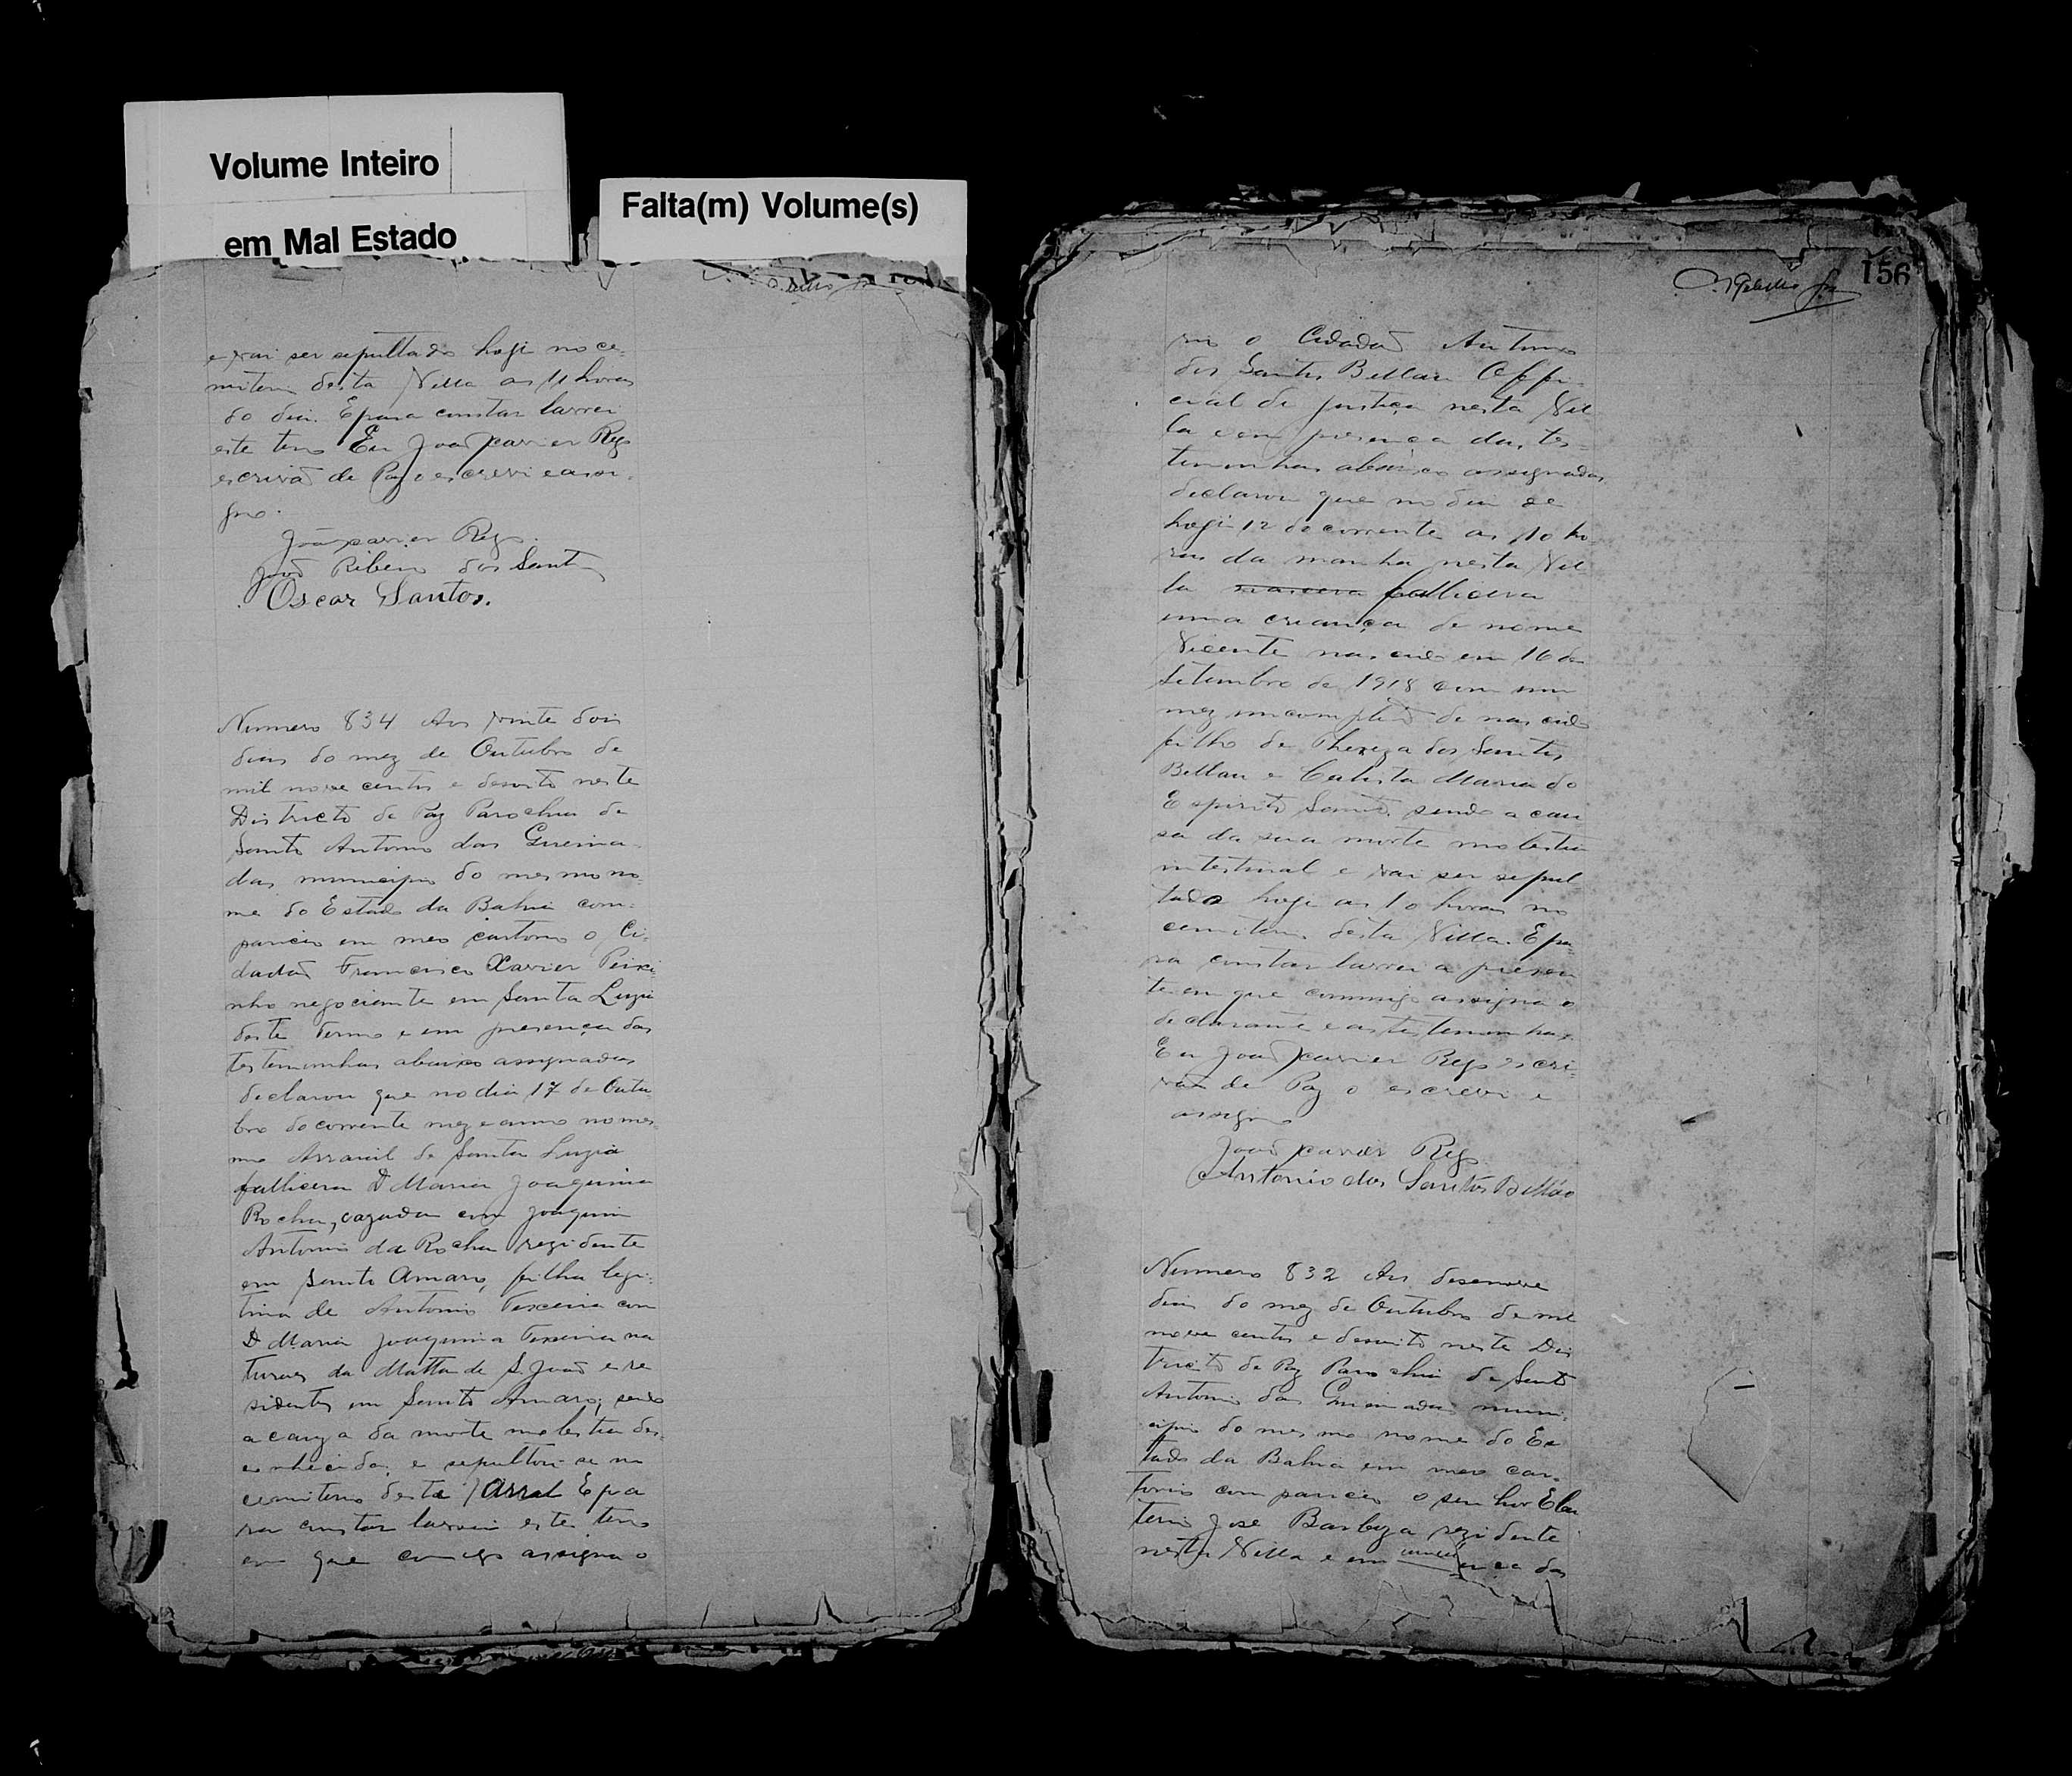 Volume Inteiro
em Mal Estado
Falta(m) Volume(s)
e vai ser sepultado hoje no ce-
miterio desta Villa as 11 horas
do dia. E para constar lavrei
este termo Eu João Xavier Rego
escrivão de Paz o escrevi e assi-
gno.
João Xavier Rego.
João Ribeiro dos Santos
Oscar Santos.
Numero 834 Aos vinte dois
dias do mez de Outubro de
mil nove centos e desoito neste
Districto de Paz Parochia de
Santo Antonio das Queima-
das municipio do mesmo no-
me do Estado da Bahia com-
pareceo em meo cartorio o Ci-
dadão Francisco Xavier Peixi-
nho negociante em Santa Luzia
deste Termo e em presença das
testemunhas abaixo assignadas
declarou que no dia 17 de Outu
bro do corrente mez e anno no mes-
mo Arraial de Santa Luzia
fallicera D Maria Joaquina
Rocha, cazada com Joaquim
Antonio da Rocha rezidente
em Santo Amaro, filha legi-
tima de Antonio Teixeira com
D Maria Joaquina Teixeira na
turaes da Matta de S. João e re
sidentes em Santo Amaro; sendo
a cauza da morte molestia des-
conhecida, e sepultou-se no
cemiterio deste Arral E pa
ra constar lavrei este termo
em que comigo assigna o
156
rio o Cidadão Antonio
dos Santos Bellau Offi-
cial de Justiça nesta Vil
la e em presença das tes-
temunhas abaixo assignadas
declarou que no dia de
hoje 12 do corrente as 10 ho
ras da manha nesta Vil-
la nascera fallicera
uma criança de nome
Vicente nascido em 16 de
Setembro de 1918 com um
mez imcompleto de nascido
filho de Thereza dos Santos
Bellau e Calista Maria do
Espirito Santo, sendo a cau
sa da sua morte molestia
intestinal e vai ser sepul
tado hoje as 10 horas no
cemiterio desta Villa. E pa-
ra constar lavrei a presen
te em que commigo assigna o
declarante e as testemunhas.
Eu João Xavier Rego escri-
vão de Paz o escrevi e
assigno
João Xavier Rego
Antonio dos Santos Bellão
Numero 832 Aos desenove
dias do mez de Outubro de mil
nove centos e desoito neste Dis
tricto de Paz Parochia de Santo
Antonio das Queimadas muni-
cipio do mesmo nome do Es
tado da Bahia em meo car-
torio compareceo o senhor Elau
terio Jose Barboza rezidente
nesta Villa e em das